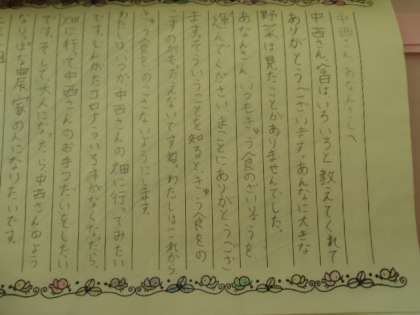 中西さん、あなんさんへ
中西さん、今日はいろいろと教えてくれて
ありがとうございます。あんなに大きな
野菜は見たことがありませんでした。
あなんさん、いつもきゅう食のざいりょうを
運んでくださいまことにありがとうござい
ます。そういうことを知ると、きゅう食をの
こすのがもったいないですね。わたしはこれから
きゅう食をのこさないようにします。
わたしは、いつか中西さんの畑に行ってみたい
です。しんがたコロナういるすがなくなったら、
畑に行って中西さんのおきつだいをしたい
です。そして、大人になったら中西さんのよう
なりっぱな農家の人になりたいです。